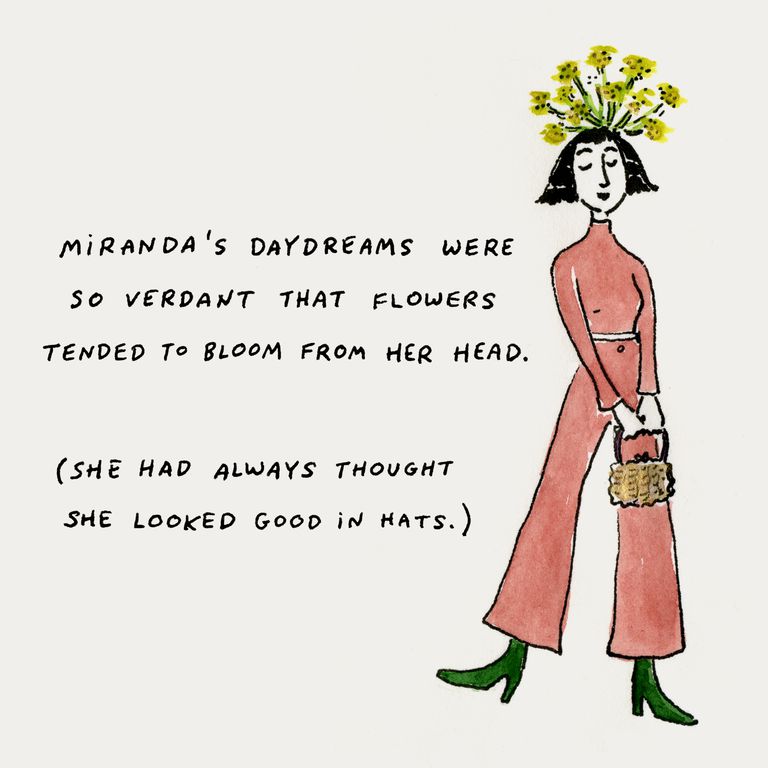 MiRANDA'S DAYDREAMS WERE
SO VERDANT THAT FLOWERS
TENDED TO BLOOM FROM HER HEAD.
(SHE HAD ALWAYS THOUGHT
SHE LOOKED GOOD iN HATS.)